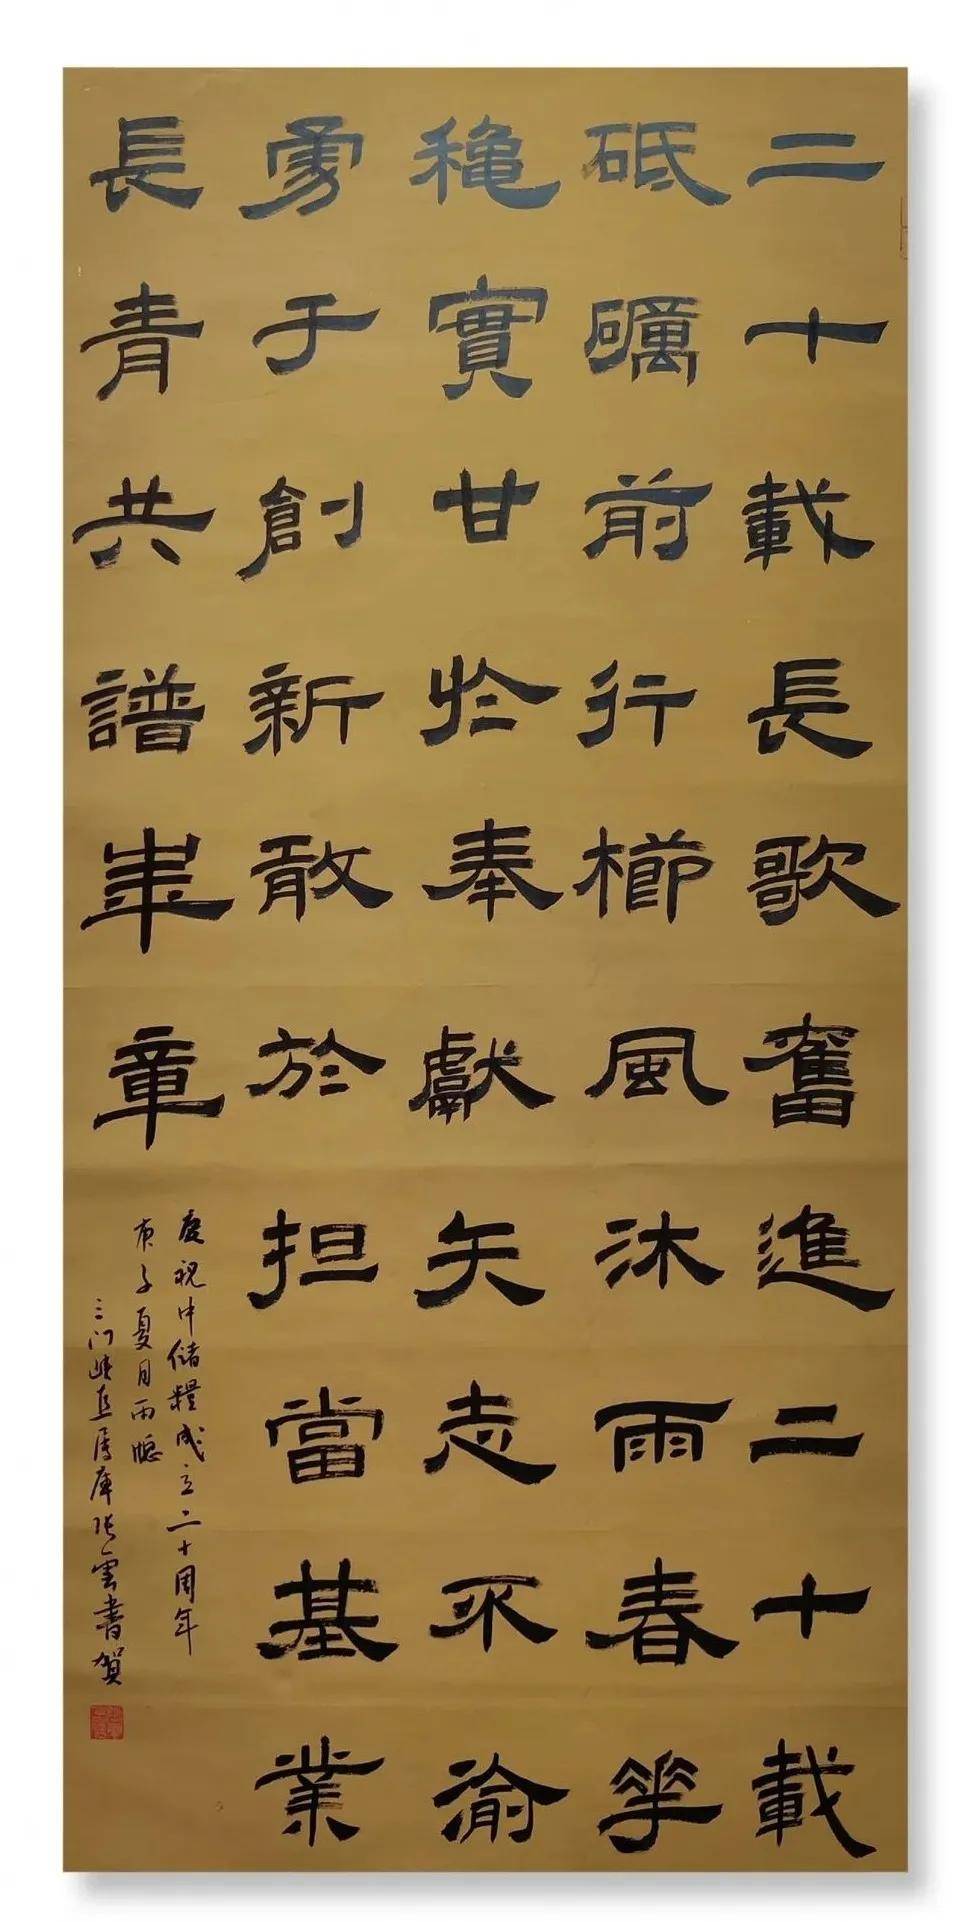 二十載長歌奮進二十載
砥礪前行櫛風沐雨春華
穐實甘於奉獻矢志不渝
勇于創新敢於担當基業
長青共譜華章
慶祝中储糧成立二十周年
庚子夏月雨牕
三门峡直属库张雲書贺